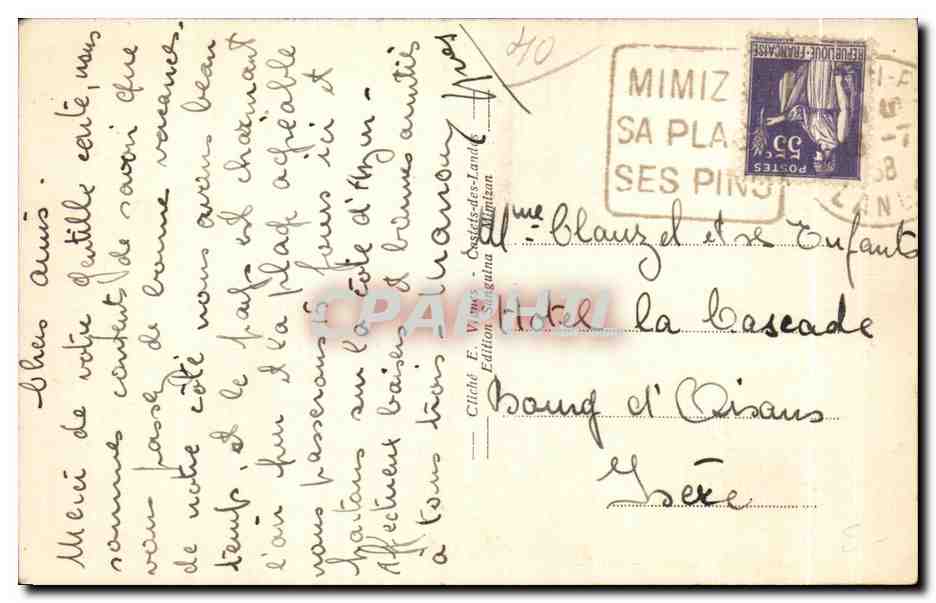 Chers amis.
Merci de votre gentille carte, nous
sommes contents de savoir que
vous passez de bonne vacances.
de notre côté nous avons beau
temps, et le pays est charmant
l'air pur et la plage agréable
nous passerons 15 jours ici et
partons sur la côte d'Azur -
Affectueux baisers et bonnes amitiés
à tous trois,
Yves
40
MIMIZ
SA PLA
SES PINS
REPUBLIQUE FRANCAISE
55c
POSTES
LAND
Cliché E. Vignes - Castets-des-Landes
Edition Sanguina Mimizan
CPAPHIL
Mme Clauzel et ses Enfants
Hotel la Cascade
Bourg d'Oisans
Isère